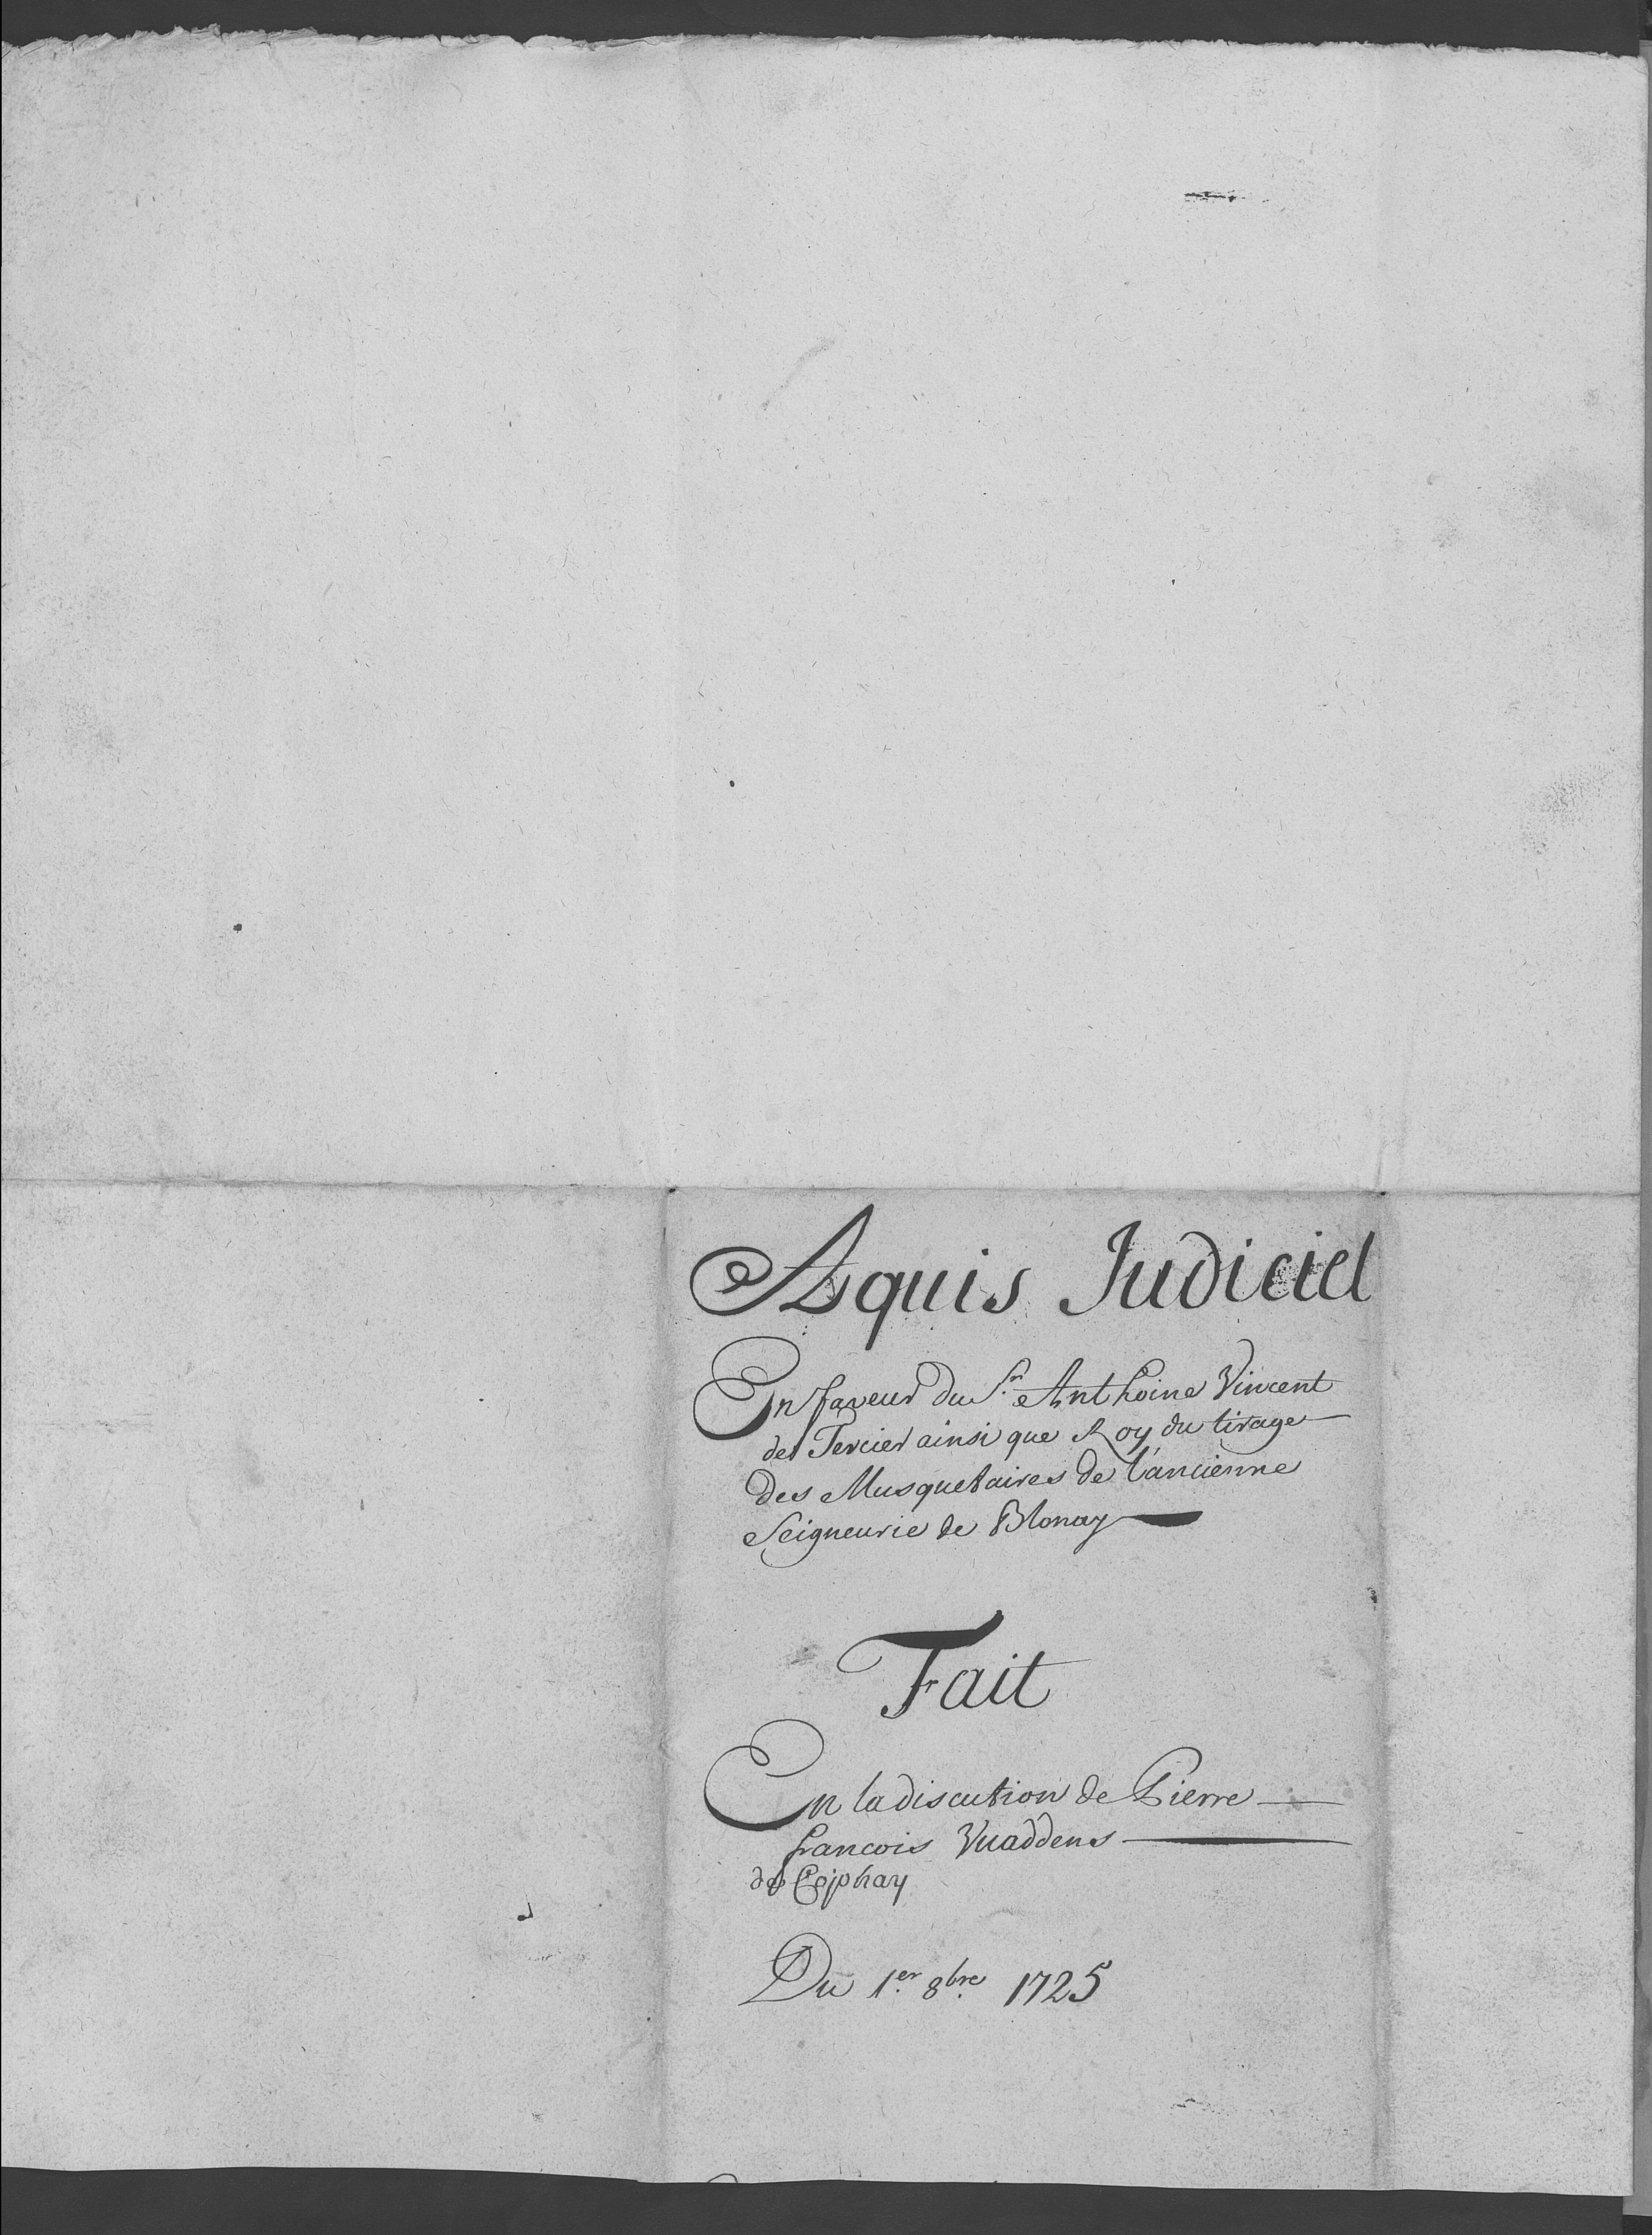 Aquis Judiciel
En faveur du Sr. Anthoine Vincent
de Tercier ainsi que Roy du tirage
des Musquetaires de l'ancienne
Seigneurie de Blonay
Fait
En la discution de Pierre
francois Vuaddens
de
Du 1.er 8.bre 1725